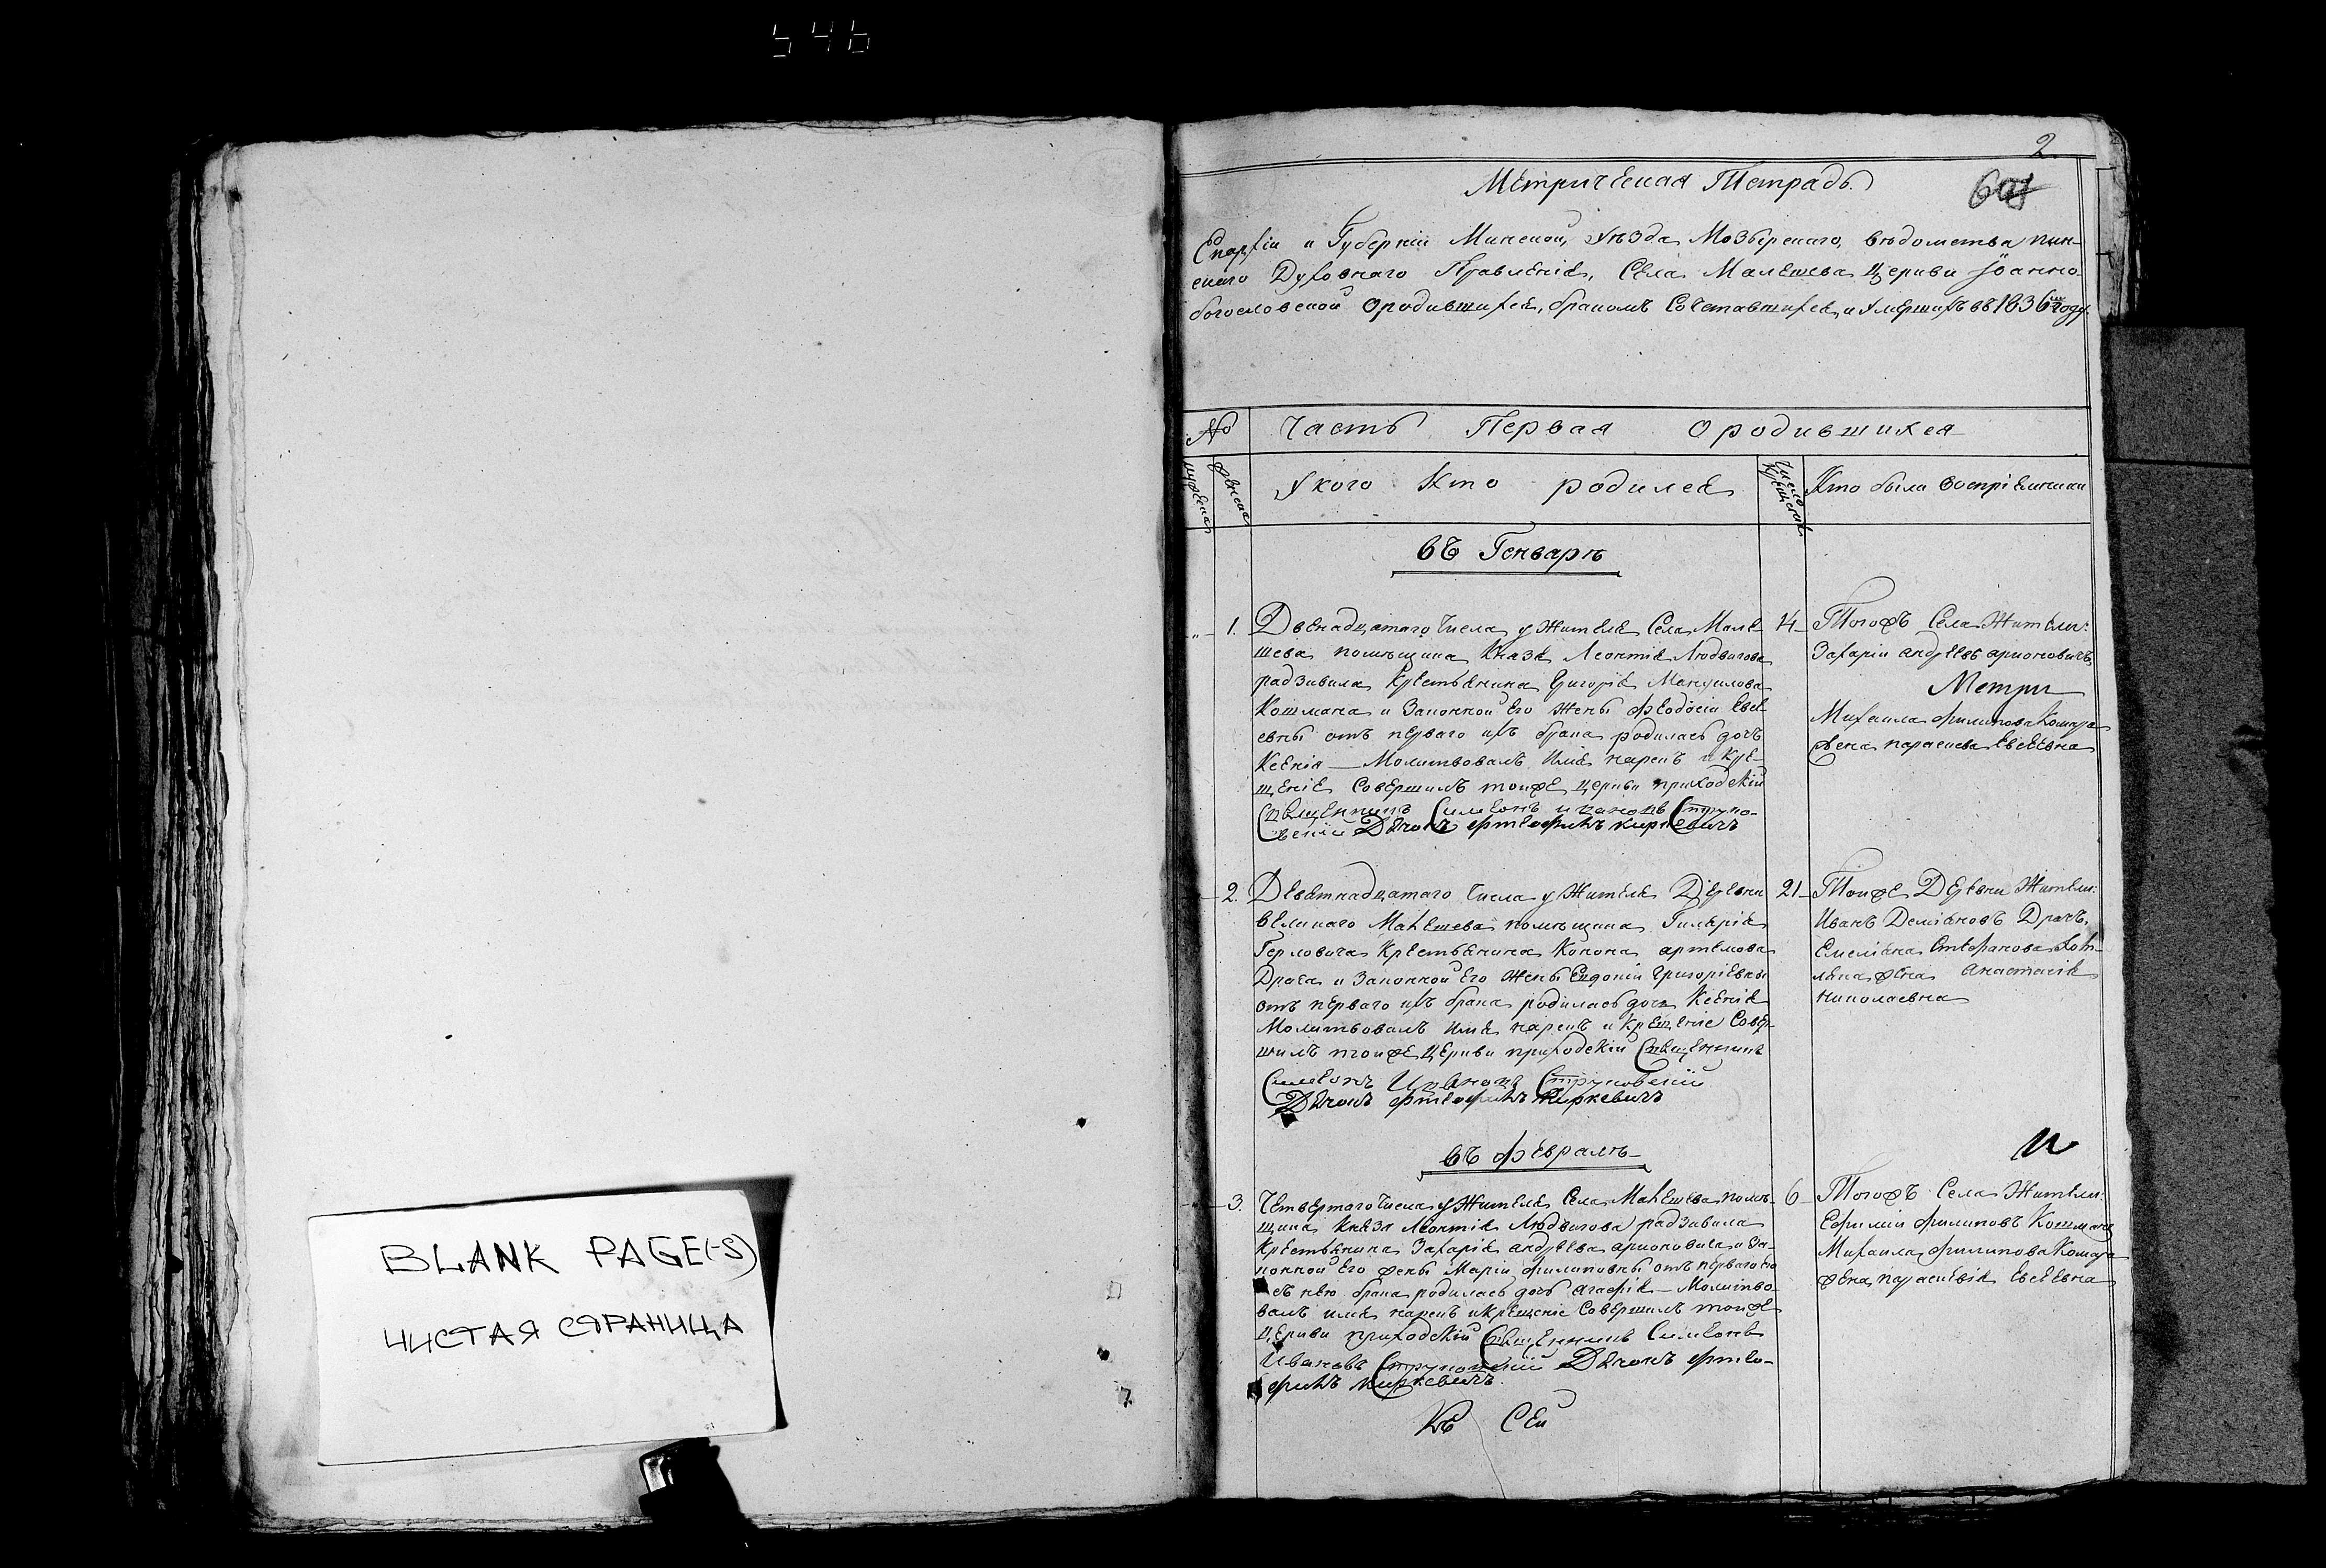 546
2.
Метрическая Тетрадь.
Епархіи и Губерніи Минской, Уѣзда Мозырскаго, вѣдомства пин-
скаго Духовнаго Правленія, Села Малешева церкви Іоанно-
богословской о родившихся, бракомъ сочетавшихся, и умершихъ въ 1836 году
№ Часть Первая о родившихся
мужеска женска У кого кто родился Число крещенія Кто были воспріемники
въ Генварѣ
1. Двенадцатаго числа у жителя Села Мале-
шева помѣщика Князя Леонтія Людвигова
радзивила крестьянина Григорія Мануилова
Кошмана и законной его жены Феодосіи Евсе-
евны отъ перваго ихъ брака родилась дочь
Ксенія — Молитвовалъ имя нарекъ и кре-
щеніе совершилъ тойже церкви приходскій
Священникъ Симеонъ Ивановъ Струко-
вскій Дьячокъ Киркевичъ
14 Тогожъ Села жители:
Захарій андреевъ арионовичъ,
Метри
Михаила филипова Комара
жена параскева Евсеевна
2. Девятнадцатаго числа у жителя Деревни
Великаго Малешева помѣщика Гиларія
Герловича крестьянина Конона артемова
Драча и законной его жены Евдокіи Григоріевны
отъ перваго ихъ брака родилась дочь Ксенія
Молитвовалъ имя нарекъ и крещеніе совер-
шилъ тойже церкви приходскій Священникъ
Симеонъ Ивановъ Струковскій
Дьячокъ Киркевичъ
21 Тойже Деревни жители:
Иванъ Деміановъ Драчъ,
Емеліана Стефанова
жена анастасія
николаевна
въ Февралѣ
3. Четвертаго числа у жителя Села Малешева помѣ-
щика Князя Леонтія Людвигова радзивила
Крестьянина Захарія андреева арионовича и за-
конной его жены Маріи филиповны отъ перваго его
съ нею брака родилась дочь агафія — Молитво-
валъ имя нарекъ и крещеніе совершилъ тойже
церкви приходскій Священникъ Симеонъ
Ивановъ Струковскій Дьячокъ
Киркевичъ.
6 Тогожъ Села жители:
Ефимій филиповъ Кошманъ
Михаила филипова Комара
жена параскевія Евсеевна
Къ Сей
BLANK PAGE(-S)
ЧИСТАЯ СТРАНИЦА